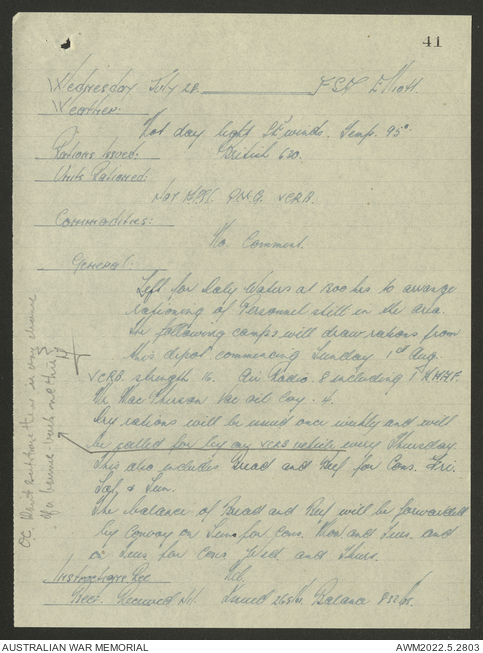 41
Wednesday July 28. FSD Elliott
Weather:
Hot day light SE winds. Temp. 95°.
Rations Issued: British 630.
Units Rationed:
VCRB.
Commodities:
No Comment.
General:
Left for Daly Waters at hrs. to arrange
rationing of Personnel still in the area.
The following camps will draw rations from
this depot commencing Sunday 1st Aug.
VCRB. strength 16. Air Radio 8 including 1
The Vac oil Coy. 4.
Dry rations will be issued once weekly and will
be called for by any VCRB vehicle every Thursday.
This also includes Bread and Beef for Cons. Fri.
Sat & Sun.
The balance of Bread and Beef will be forwarded
by Convoy on Sun. for Cons. Mon and Tues. and
on Tues. for Cons. Wed and Thurs.
Instructions Rec Nil.
Beef. Received Nil. Issued Balance
OC.
AUSTRALIAN WAR MEMORIAL
AWM2022.5.2803